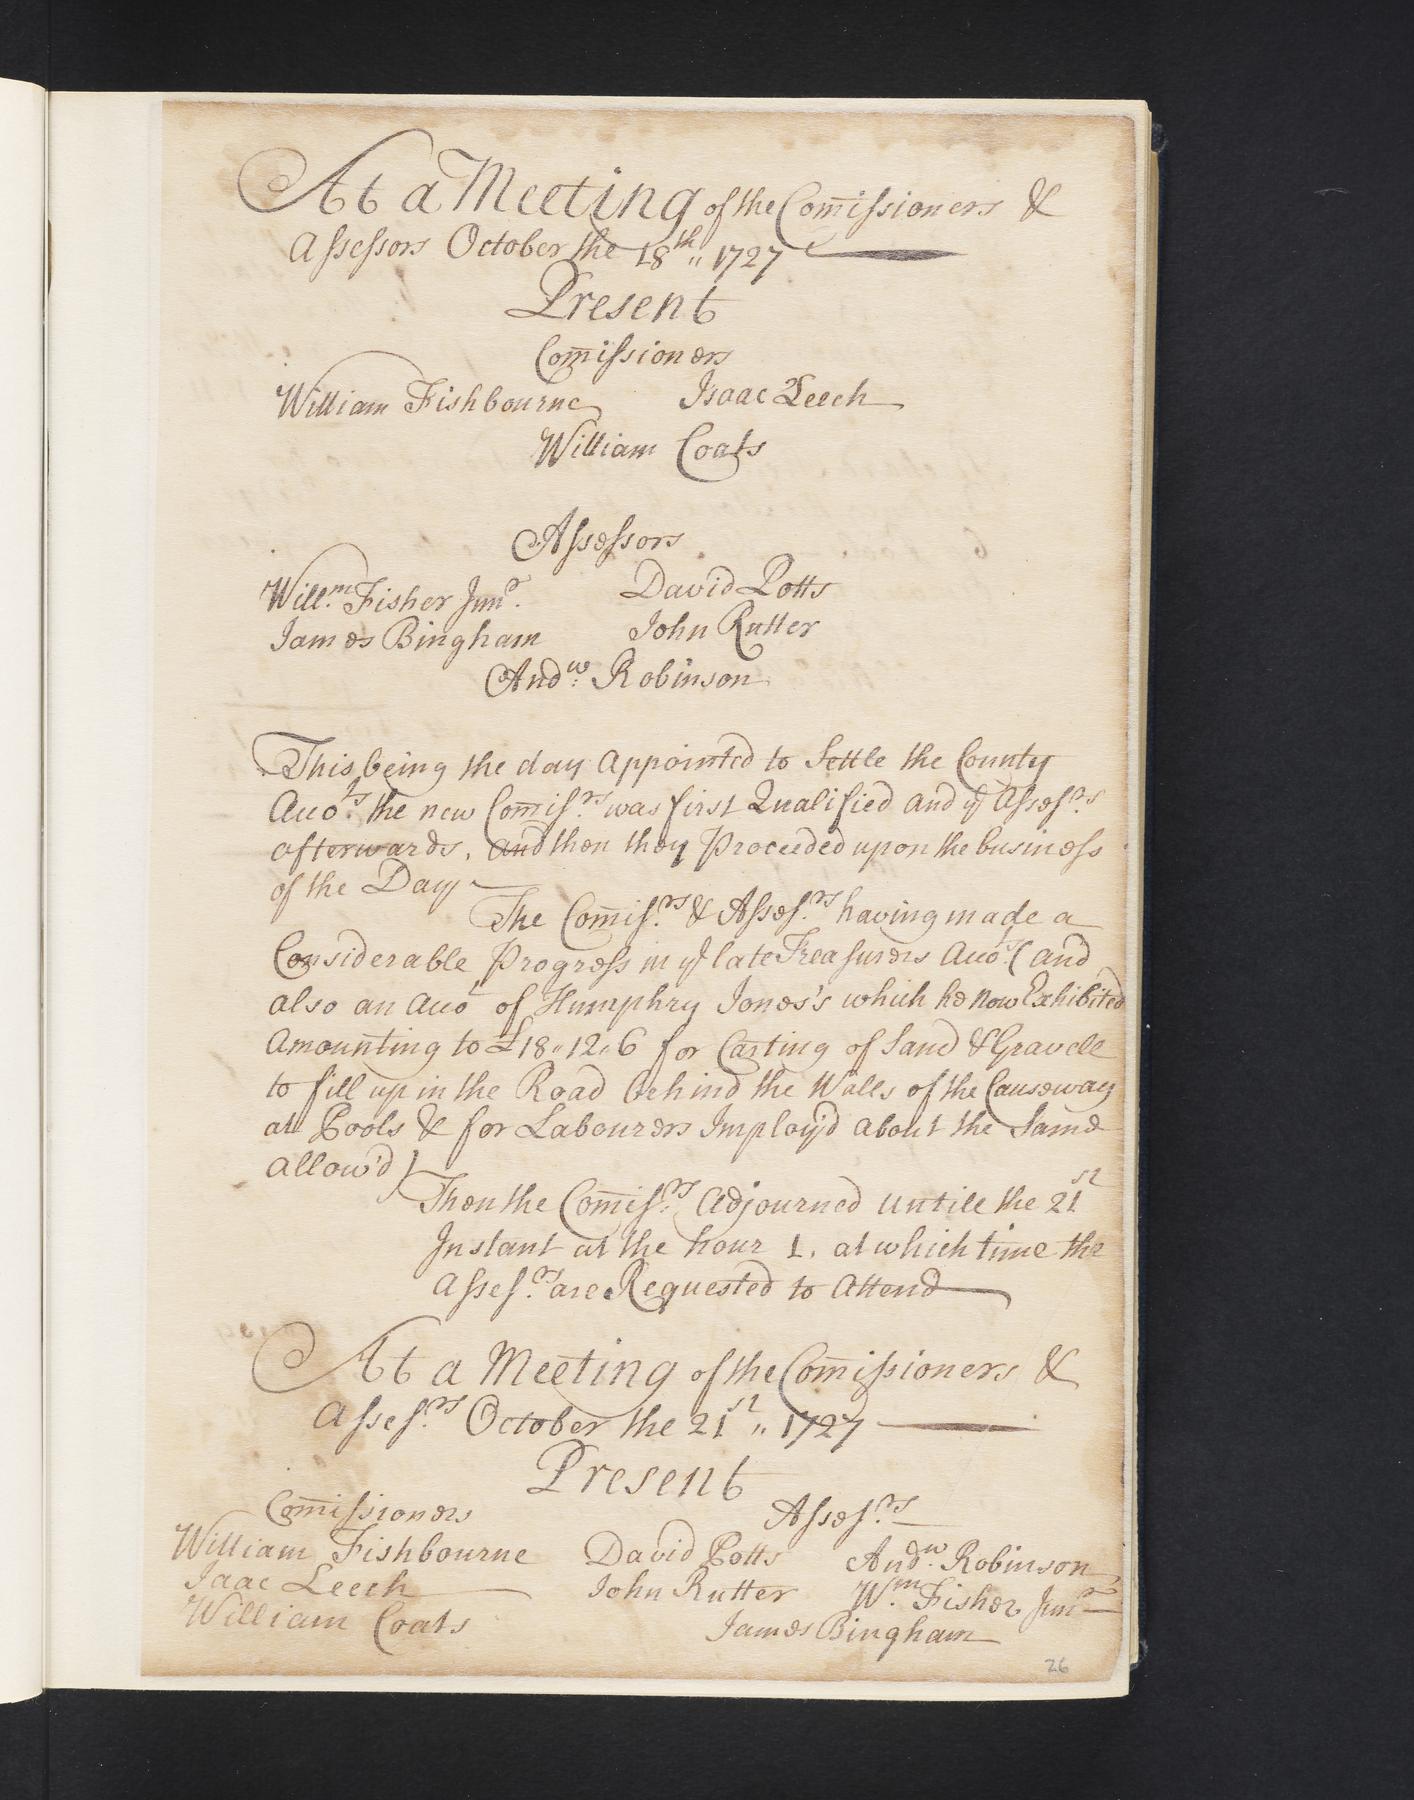 At a Meeting of the Com̄issioners &
Assessors October the 18th,, 1727
Present
Com̄issioners
William Fishbourne Isaac Leech
William Coats
Assessors
Will.m Fisher Junr.
David Potts
James Bingham
John Rutter
Andw. Robinson
This being the day appointed to Settle the County
Acco.ts the new Com̄iss.rs was first Qualified and ye Assess.rs
afterwards. and then they Proceeded upon the business
of the Day
The Com̄iss.rs & Assess.rs having made a
Considerable Progress in ye late Treasurers Acco.ts (and
also an Acco.t of Humphry Jones's which he now Exhibited
Amounting to £18,,12,,6 for Casting of Sand & Gravell
to fill up in the Road behind the Walls of the Causeway
at Pools & for Labourers Imploy'd about the Same
allow'd)
Then the Com̄iss.rs Adjourned untill the 21st
Instant at the hour 1. at which time the
Assess.rs are Requested to Attend
At a Meeting of the Com̄issioners &
Assess.rs October the 21st,, 1727
Present
Com̄issioners Assess.rs
William Fishbourne David Potts Andw. Robinson
Isaac Leech John Rutter Wm. Fisher Junr
William Coats James Bingham
26